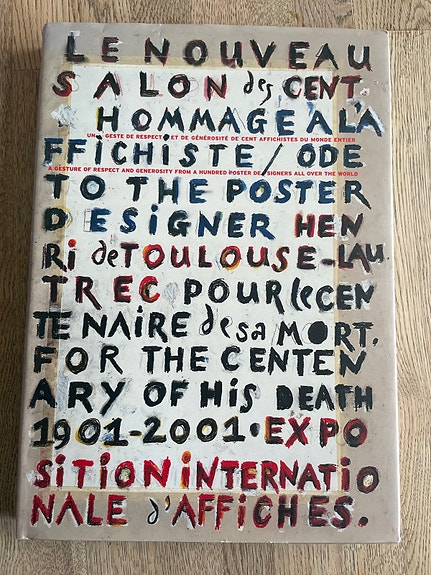 LE NOUVEAU
SALON des CENT.
HOMMAGE A L'A
UN GESTE DE RESPECT ET DE GÉNÉROSITÉ DE CENT AFFICHISTES DU MONDE ENTIER
FFICHISTE/ODE
A GESTURE OF RESPECT AND GENEROSITY FROM A HUNDRED POSTER DESIGNERS ALL OVER THE WORLD
TO THE POSTER
DESIGNER HEN
Ri de TOULOUSE-LAU
TREC POUR le CEN
TENAIRE de sa MORT.
FOR THE CENTEN
ARY OF HiS DEATH
1901-2001. EXPO
SiTiON iNTERNATiO
NALE d'AFFiCHES.